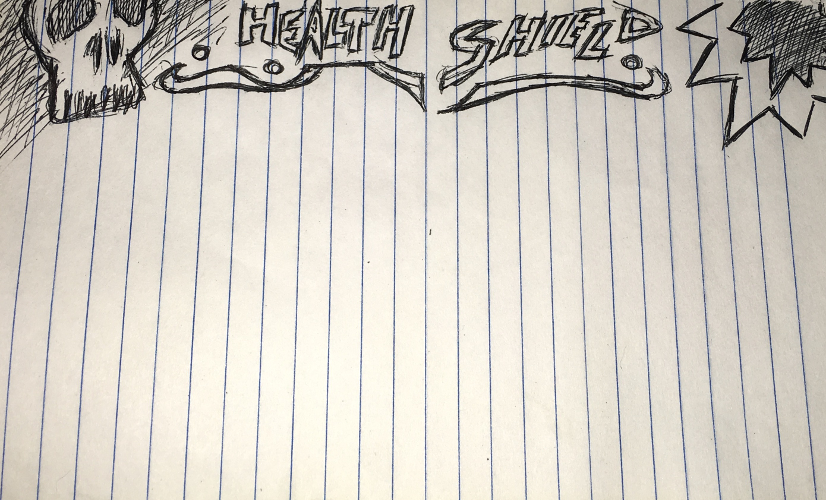 HEALTH SHIELD